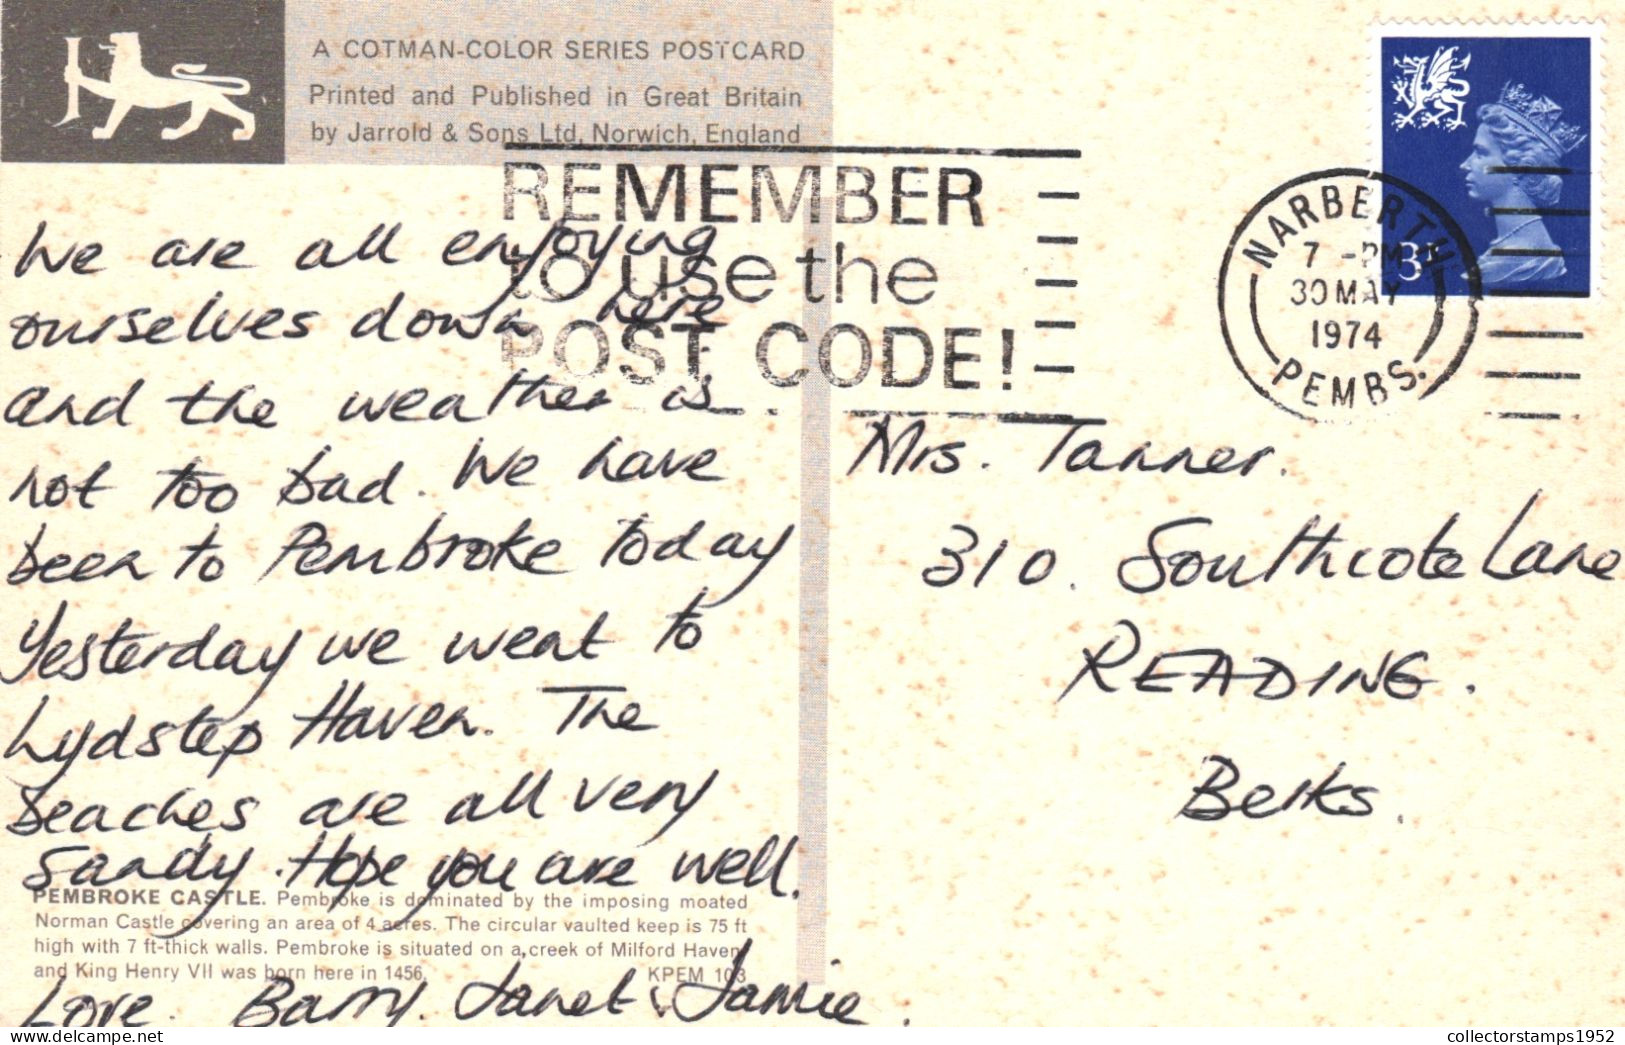 A COTMAN-COLOR SERIES POSTCARD
Printed and Published in Great Britain
by Jarrold & Sons Ltd, Norwich, England
REMEMBER
to use the
POST CODE!
NARBERTH
7 - PM
30 MAY
1974
PEMBS.
3P
We are all enjoying
ourselves down here
and the weather is
not too bad. We have
been to Pembroke today
Yesterday we went to
Lydstep Haven. The
beaches are all very
sandy. Hope you are well.
Love. Barry. Janet & Jamie.
Mrs. Tanner.
310. Southcote Lane
READING.
Berks.
PEMBROKE CASTLE. Pembroke is dominated by the imposing moated
Norman Castle covering an area of 4 acres. The circular vaulted keep is 75 ft
high with 7 ft-thick walls. Pembroke is situated on a creek of Milford Haven
and King Henry VII was born here in 1456.
KPEM 103
collectorstamps1952